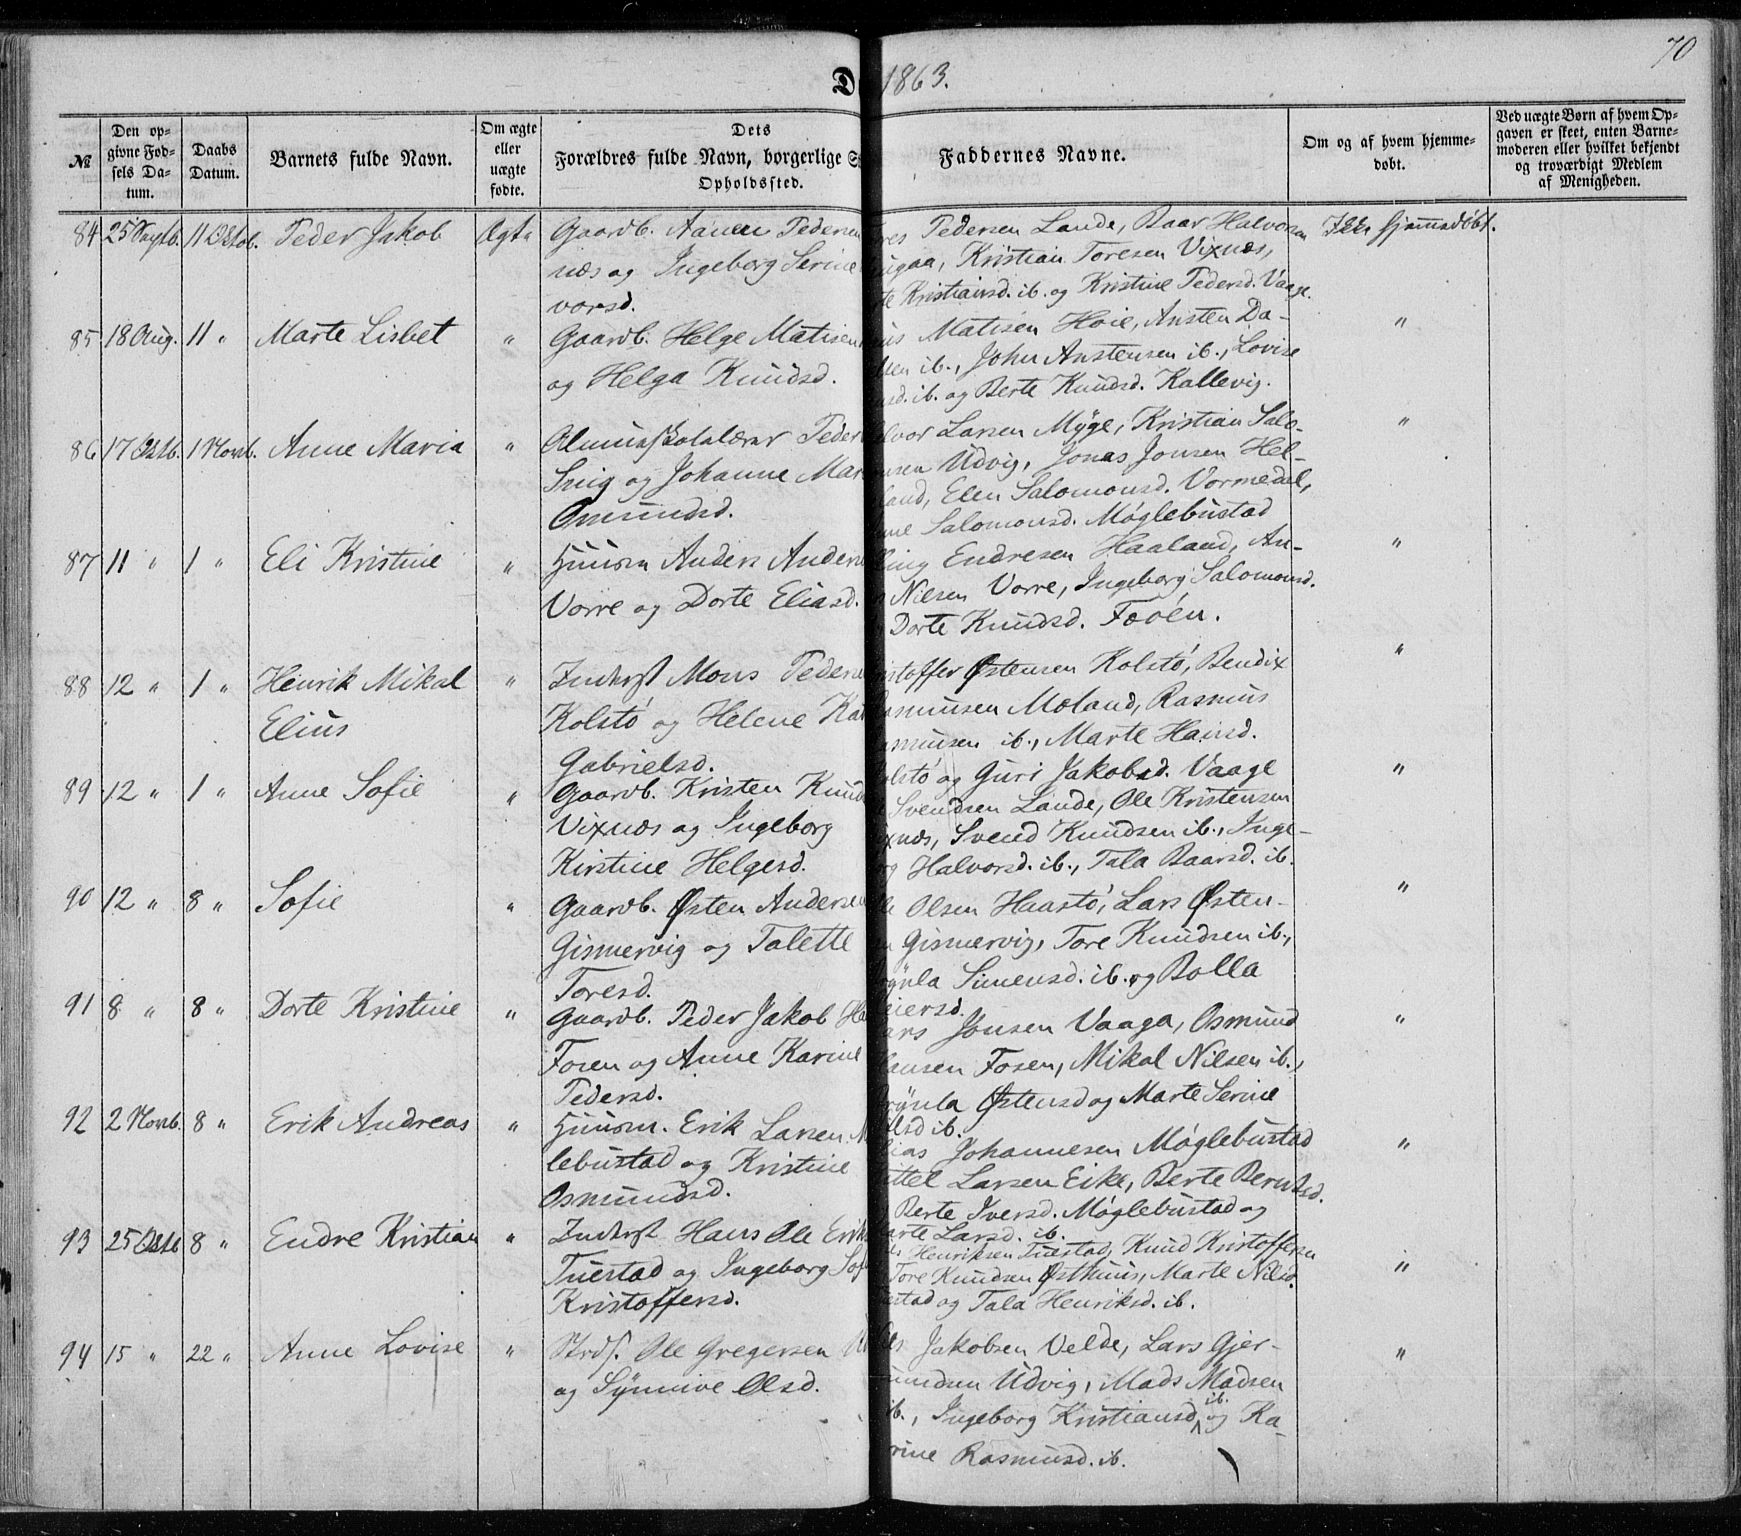 70
D 1863.
№
Den op-
givne Fød-
sels Da-
tum.
Daabs
Datum.
Barnets fulde Navn.
Om ægte
eller
uægte
fødte.
Dets
Forældres fulde Navn, borgerlige S
Opholdssted.
Faddernes Navne.
Om og af hvem hjemme-
døbt.
Ved uægte Børn af hvem Op-
gaven er skeet, enten Barne-
moderen eller hvilket bekjendt
og troværdigt Medlem
af Menigheden.
84 25 Septb. 11 Octob. Peder Jakob Ægte Gaardb. Aanen Pedersen
næs og Ingeborg Serine
vorsd.
res Pedersen Lande, Baar Halvorsen
ugaa, Kristian Toresen Vixnæs,
te Kristiansd. ib. og Kristine Pedersd. Vaage.
Ikke hjemmedøbt.
85 18 Aug. 11 „ Marte Lisbet „ Gaardb. Helge Matisen
og Helga Knudsd.
us Matisen Høie, Ansten Da-
sen ib., John Anstensen ib., Lovise
sd. ib. og Berte Knudsd. Kallevig.
„
86 17 Octb. 1 Novb. Anne Maria „ Almueskolelærer Peder
Snig og Johanne Mar
Omundsd.
lvor Larsen Myge, Kristian Salo-
nsen Udvig, Jonas Jonsen Hel-
land, Elen Salomonsd. Vormedal,
nne Salomonsd. Møglebustad
„
87 11 „ 1 „ Eli Kristine „ Huusm Anders Anderse
Vorre og Dorte Eliasd.
ling Endresen Haaland, An-
s Nilsen Vorre, Ingeborg Salomonsd.
Dorte Knudsd. Fæøen.
„
88 12 „ 1 „ Henrik Mikal
Elius
„ Inderst Mons Pederse
Kolstø og Helene Kat
Gabrielsd.
ristoffer Østensen Kolstø, Bendix
asmusen Moland, Rasmus
asmusen ib., Marte Hansd.
olstø og Guri Jakobsd. Vaage
„
89 12 „ 1 „ Anne Sofie „ Gaardb. Kristen Knud
Vixnæs og Ingeborg
Kirstine Helgesd.
Svendsen Lande, Ole Kristensen
ixnæs, Svend Knudsen ib., Inge-
rg Halvorsd. ib., Tala Baarsd. ib.
„
90 12 „ 8 „ Sofie „ Gaardb. Østen Andersen
Gismervig og Talette
Toresd.
le Olsen Haastø, Lars Østen-
n Gismervig, Tore Knudsen ib.,
rynla Simensd. ib. og Bolla
eiersd.
„
91 8 „ 8 „ Dorte Kristine „ Gaardb. Peder Jakob Ha
Fosen og Anne Karine
Pedersd.
ars Jonsen Vaaga, Osmund
ansen Fosen, Mikal Nilsen ib.,
rynla Østensd og Marte Serine
lsd ib.
„
92 2 Novb. 8 „ Erik Andreas „ Huusm. Erik Larsen M
lebustad og Kristine
Osmundsd.
ias Johannesen Møglebustad
ittel Larsen Eike, Berte Berntsd.
Berte Iversd. Møglebustad og
arte Larsd. ib.
„
93 25 Octb 8 „ Endre Kristian „ Inderst Hans Ole Erik
Tuestad og Ingeborg Sof
Kristoffersd.
Henriksen Tuestad, Knud Kristoffersen
Tore Knudsen Østhuus, Marte Nilsd.
estad og Tala Henriksd. ib.
„
94 15 „ 22 „ Anne Lovise „ Strds. Ole Gregersen
og Synnive Olsd.
Jakobsen Velde, Lars Gjer-
mundsen Udvig, Mads Madsen
ib., Ingeborg Kristiansd. ib. og Ka-
rine Rasmusd. ib.
„